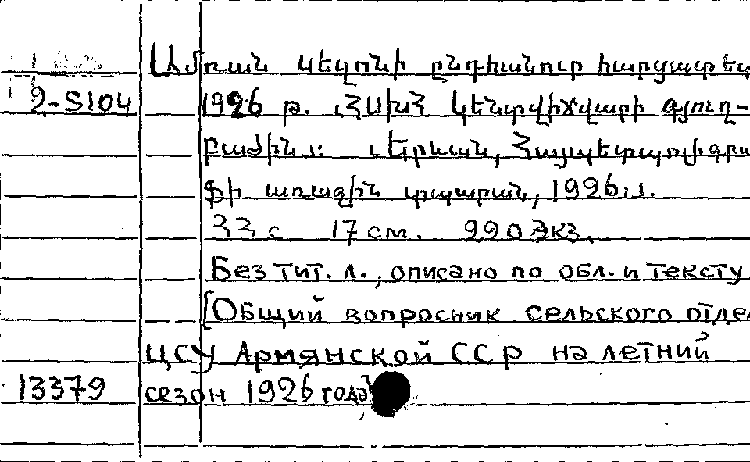 Ամռան սեզոնի ընդհանուր հարցաթեր
2-5104 1926 թ. ՀՍԽՀ Կենտվիճվարի գյուղ-
բաժին: Երևան, Հայպետպոլիգրա
ֆի առաջին տպարան, 1926 թ.
33 с 17 см. 990 экз.
Без тит. л., описано по обл. и тексту
[Общий вопросник сельского отде
ЦСУ Армянской ССР на летний
13379 сезон 1926 года]